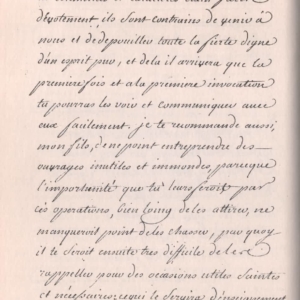 devotement ils sont contrains de venir à
nous et de depouiller toute la fierté digne
d'un esprit pur, et dela il arrivera que la
premiere fois et a la premiere invocation
tu pourras les voir et communiquer avec
eux facilement. je te recommande aussi,
mon fils, de ne point entreprendre des
ouvrages inutiles et immondes, parceque
l'importunité que tu leurs feroit par
ces operations, bien loing de les attirer, ne
manqueroit point de les chasser, par quoy
il te seroit ensuite tres difficile de les
rappeller pour des occasions utiles saintes
et necessaires, ce qui te servira